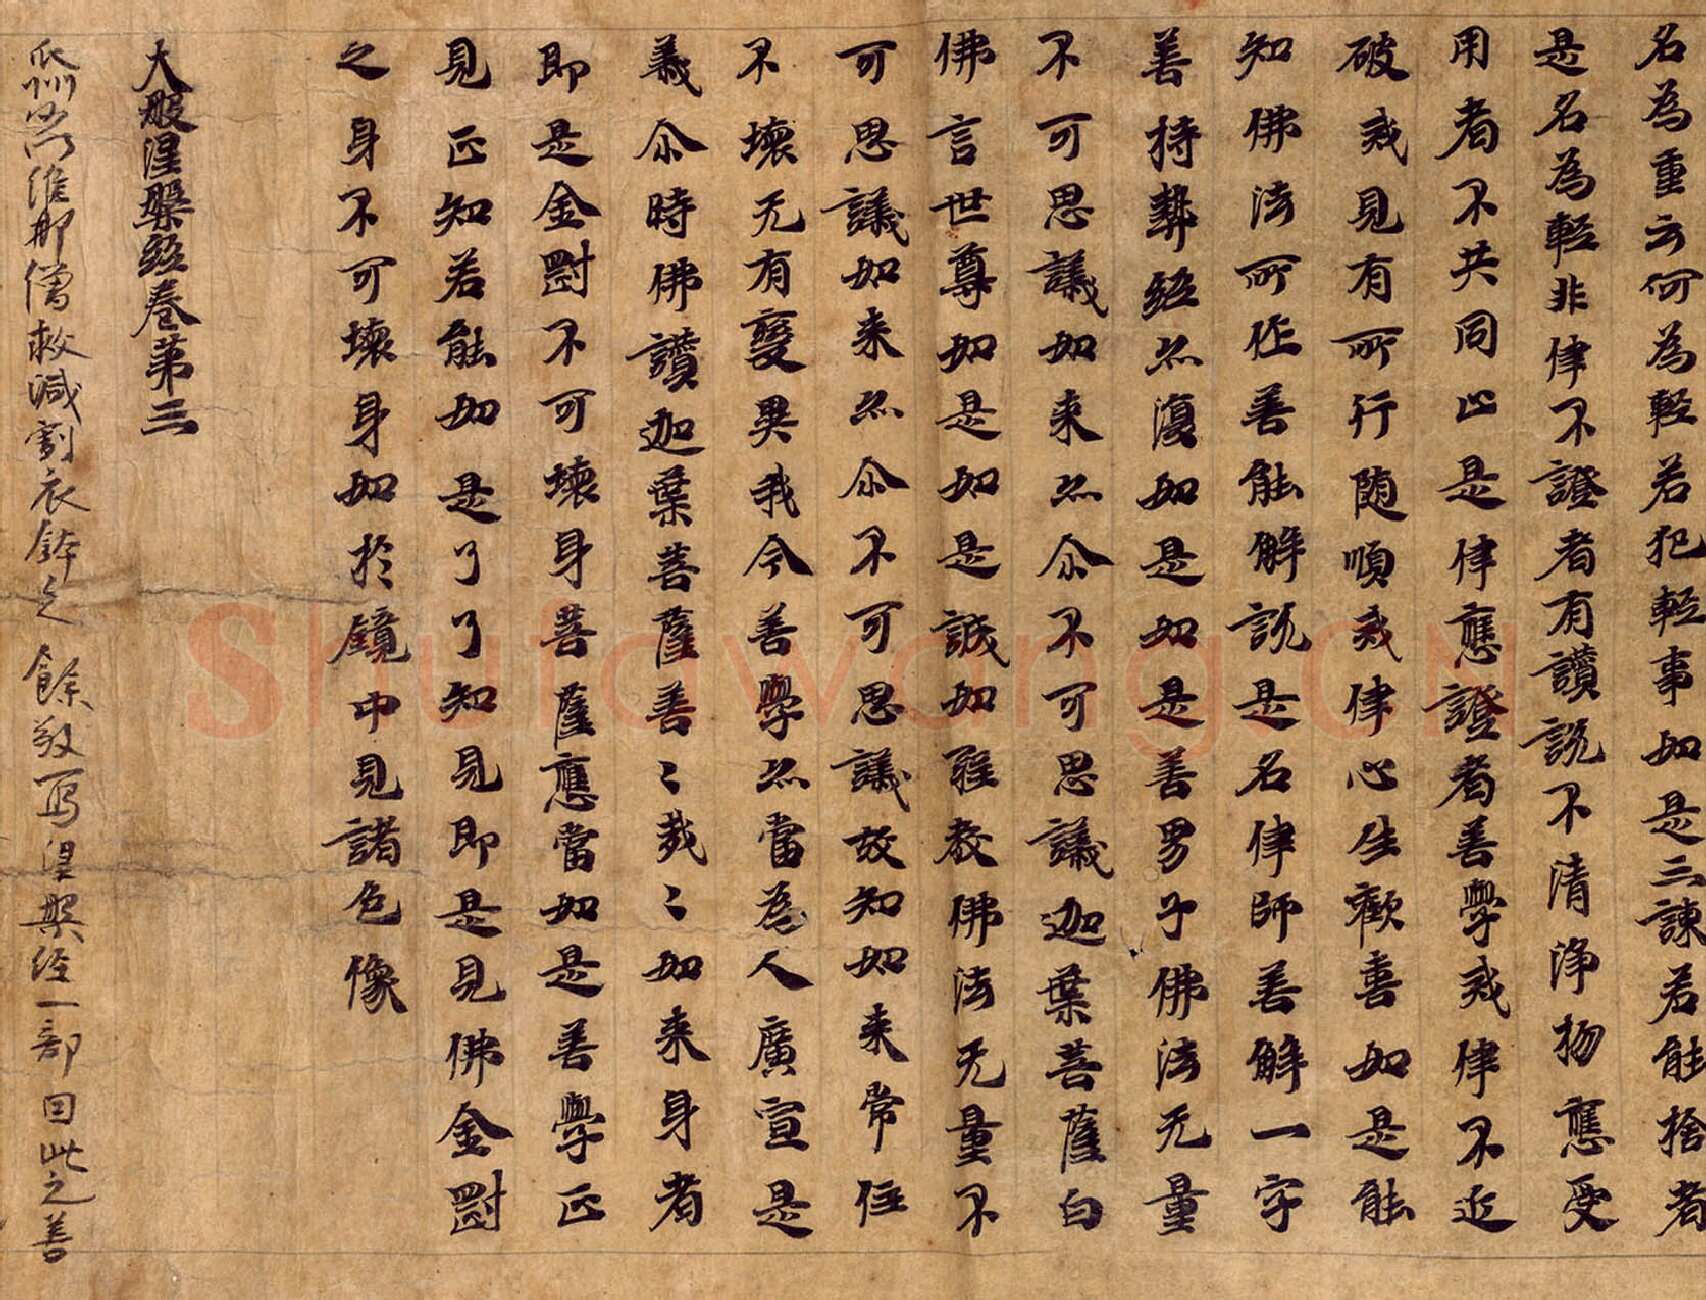 名為重云何為輕若犯輕事如是三諫若能捨者
是名為輕非律不證者有讚説不清淨物應受
用者不共同止是律應證者善學戒律不近
破戒見有所行随順戒律心生歡喜如是能
知佛法所作善能解説是名律師善解一字
善持契經亦復如是如是善男子佛法无量
不可思議如来亦尒不可思議迦葉菩薩白
佛言世尊如是如是誠如聖教佛法无量不
可思議如来亦尒不可思議故知如来常住
不壞无有變異我今善學亦當為人廣宣是
義尒時佛讚迦葉菩薩善〻哉〻如来身者
即是金剛不可壞身菩薩應當如是善學正
見正知若能如是了了知見即是見佛金剛
之身不可壞身如於鏡中見諸色像
大般涅槃經卷第三
瓜州沙門維那僧救減割衣鉢之餘敬寫涅槃經一部因此之善
Shufawang.CN